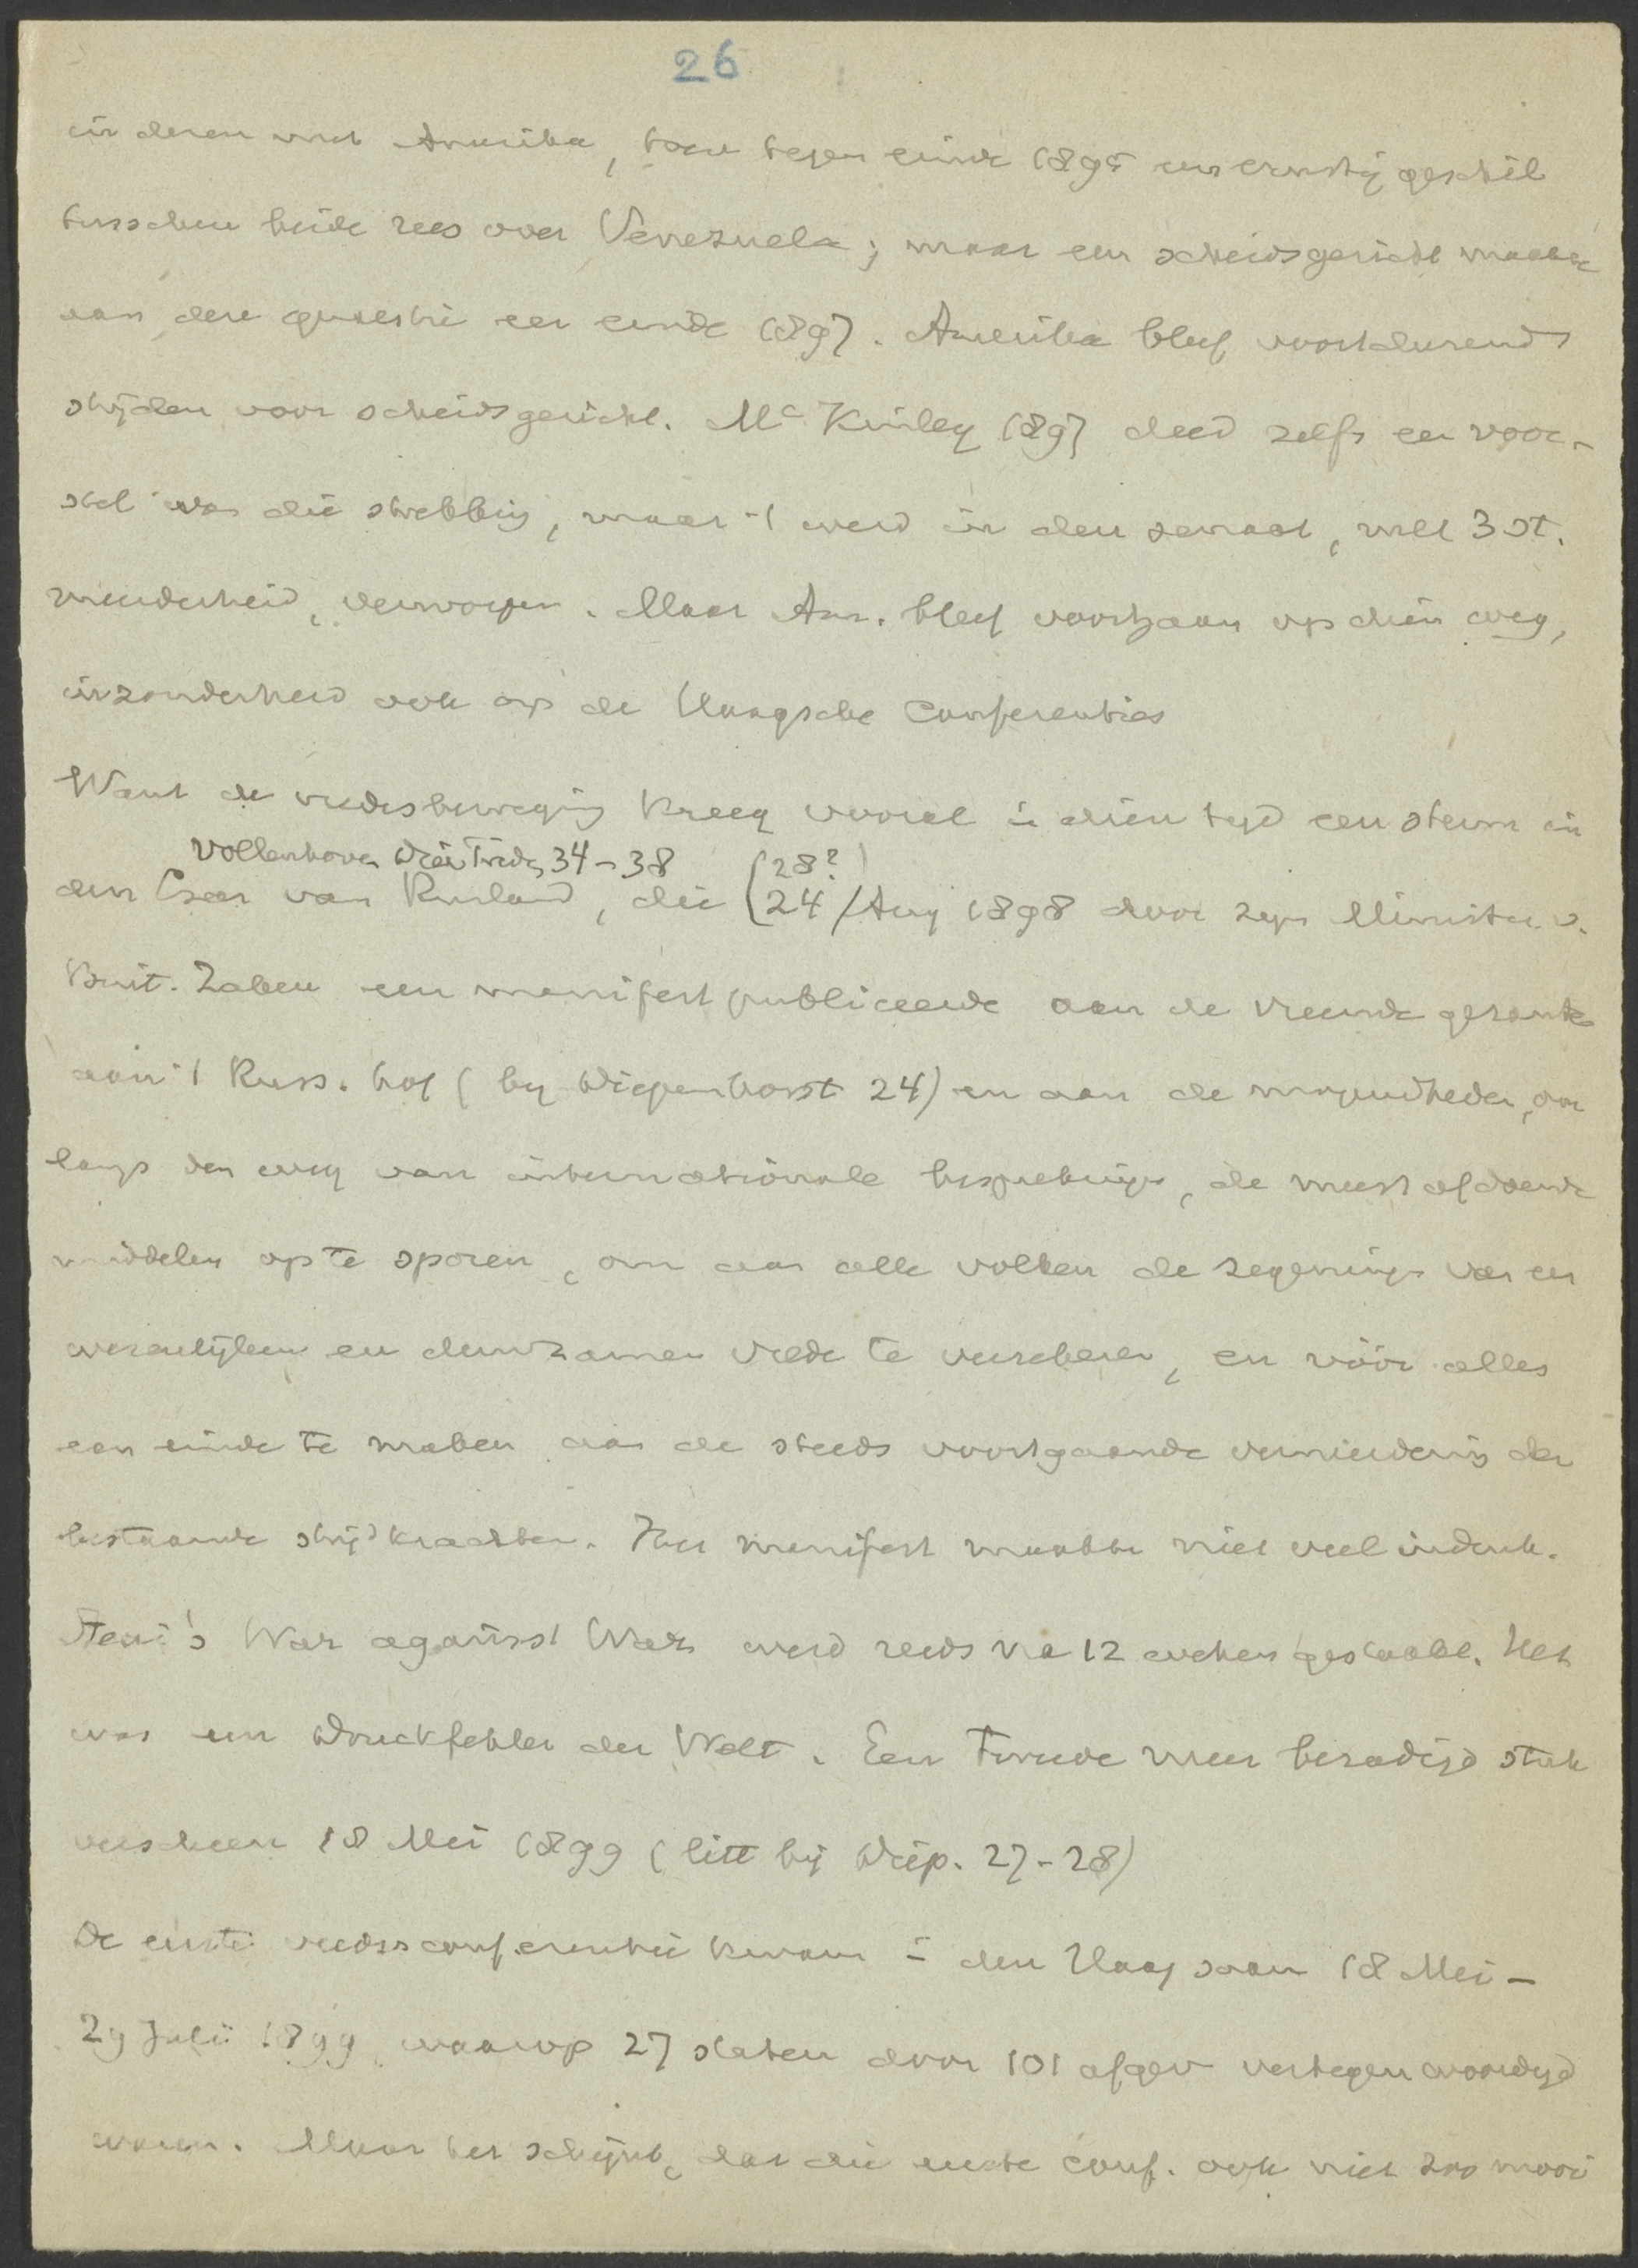 26
in deren met Amerika, toen tegen einde 1895 een ernstig geschil
tusschen beide rees over Venezuela; maar een scheidsgericht maakte
aan deze quaestie een einde 1897. Amerika bleef voortdurend
strijden voor scheidsgericht. Mc Kinley 1897 deed zelfs een voor-
stel van die strekking, maar 't werd in den senaat, met 3 st.
meerderheid, verworpen. Maar Am. bleef voortgaan op dien weg,
inzonderheid ook op de Haagsche Conferenties
Want de vredesbeweging kreeg vooral in dien tijd een steun in
Vollenhoven Drie Treden 34-38 (28?)
den Czar van Rusland, die (24 / Aug 1898 door zijn Minister v.
Buit. Zaken een manifest publiceerde aan de vreemde gezanten
aan 't Russ. hof (by Diepenhorst 24) en aan de mogendheden, om
langs den weg van internationale besprekingen, de meest afdoende
middelen op te sporen, om aan alle volken de zegeningen van een
werkelijken en duurzamen vrede te verzekeren, en vóór alles
een einde te maken aan de steeds voortgaande vermeerdering der
bestaande strijdkrachten. Het manifest maakte niet veel indruk.
Stead's War against War werd reeds na 12 weken gestaakt. Het
was een Druckfehler der Welt. Een tweede meer bezadigd stuk
verscheen 18 Mei 1899 (litt bij Diep. 27-28)
De eerste vredesconferentie kwam in den Haag saam 18 Mei -
29 Juli 1899 waarop 27 staten door 101 afgev vertegenwoordigd
waren. Maar het schijnt, dat die eerste conf. ook niet zoo mooi